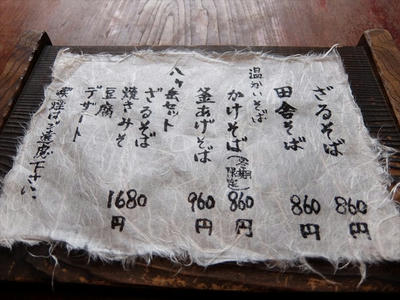 ざるそば 860円
田舎そば 860円
温かいそば
かけそば(冬期限定) 860円
釜あげそば 960円
八ヶ岳セット
ざるそば
焼きみそ
豆腐
デザート 1680円
喫煙はご遠慮下さい